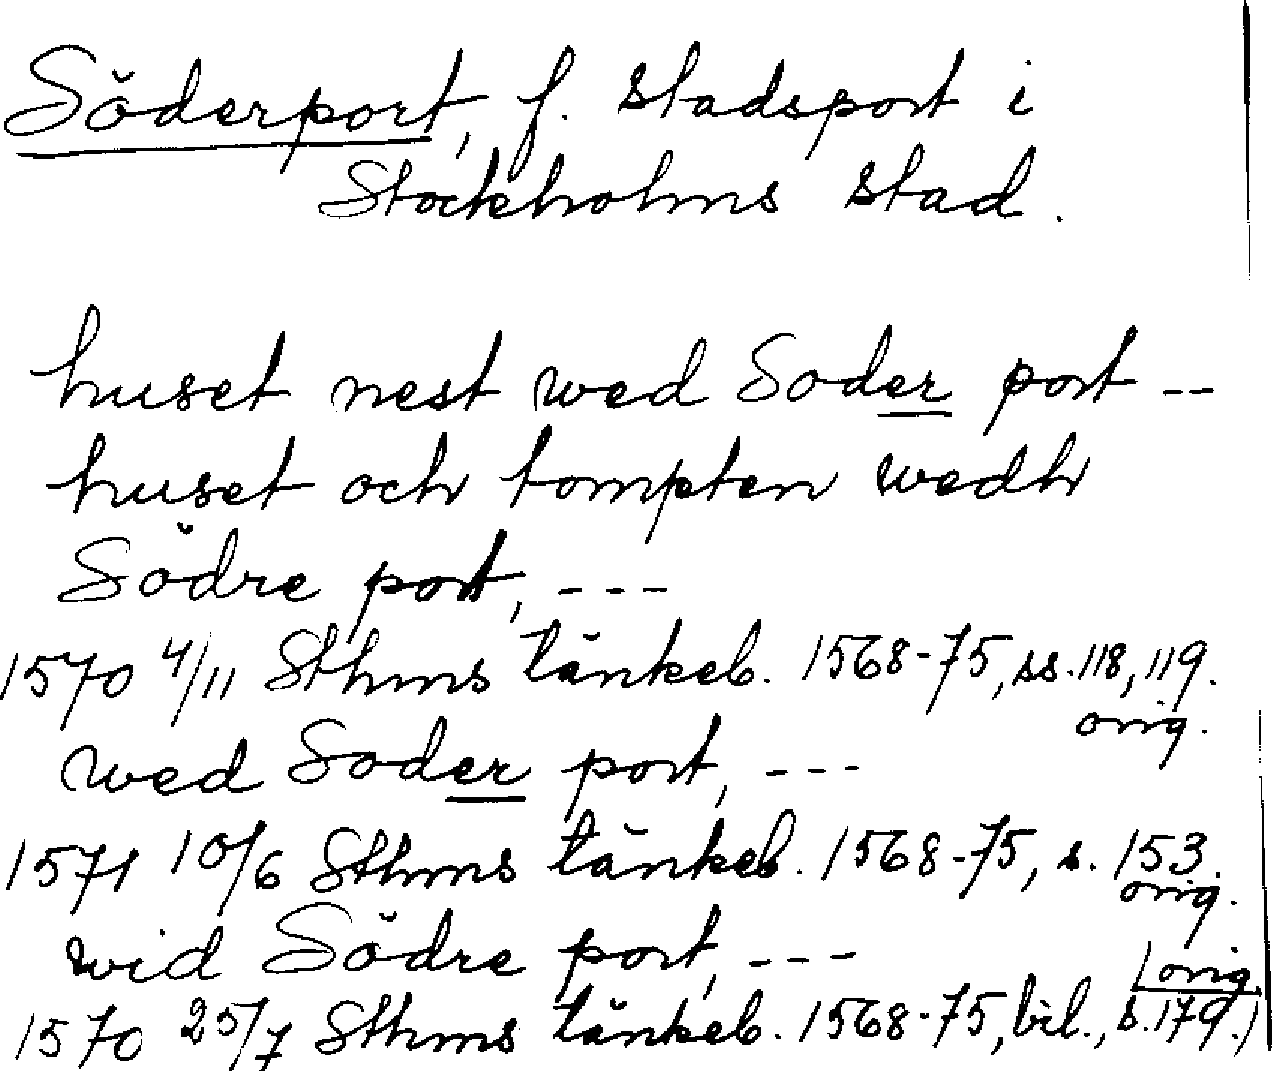 Söderport, f. stadsport i
Stockholms stad.
huset nest wed Soder port --
huset och tompten wedh
Södre port, ---
1570 4/11 Sthms tänkeb. 1568-75, ss. 118, 119.
orig.
wed Soder port, ---
1571 10/6 Sthms tänkeb. 1568-75, s. 153.
orig.
wid Södre port, ---
orig
1570 25/7 Sthms tänkeb. 1568-75, bil., s. 179.)